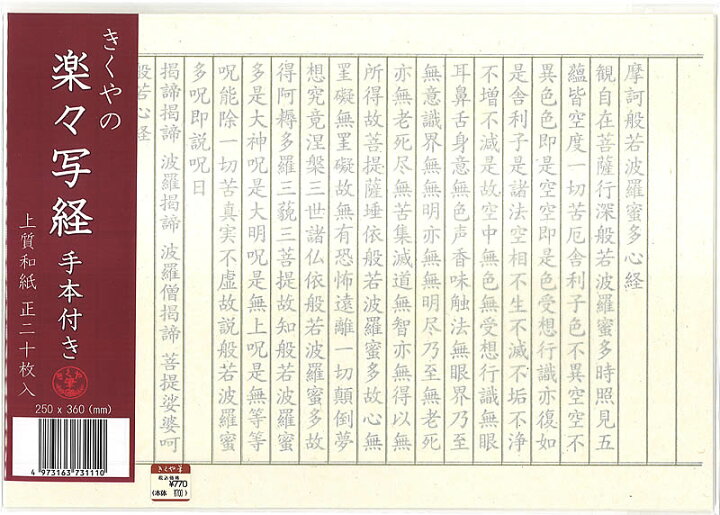 摩訶般若波羅蜜多心経
観自在菩薩行深般若波羅蜜多時照見五
蘊皆空度一切苦厄舎利子色不異空空不
異色色即是空空即是色受想行識亦復如
是舎利子是諸法空相不生不滅不垢不浄
不増不減是故空中無色無受想行識無眼
耳鼻舌身意無色声香味触法無眼界乃至
無意識界無無明亦無無明尽乃至無老死
亦無老死尽無苦集滅道無智亦無得以無
所得故菩提薩埵依般若波羅蜜多故心無
罣礙無罣礙故無有恐怖遠離一切顛倒夢
想究竟涅槃三世諸仏依般若波羅蜜多故
得阿耨多羅三藐三菩提故知般若波羅蜜
多是大神呪是大明呪是無上呪是無等等
呪能除一切苦真実不虚故説般若波羅蜜
多呪即説呪曰
掲諦掲諦 波羅掲諦 波羅僧掲諦 菩提娑婆呵
般若心経
きくやの
楽々写経 手本付き
上質和紙 正二十枚入
250 x 360 (mm)
4 973163 731110
きくや筆
税込価格
¥770
(本体 ¥700)